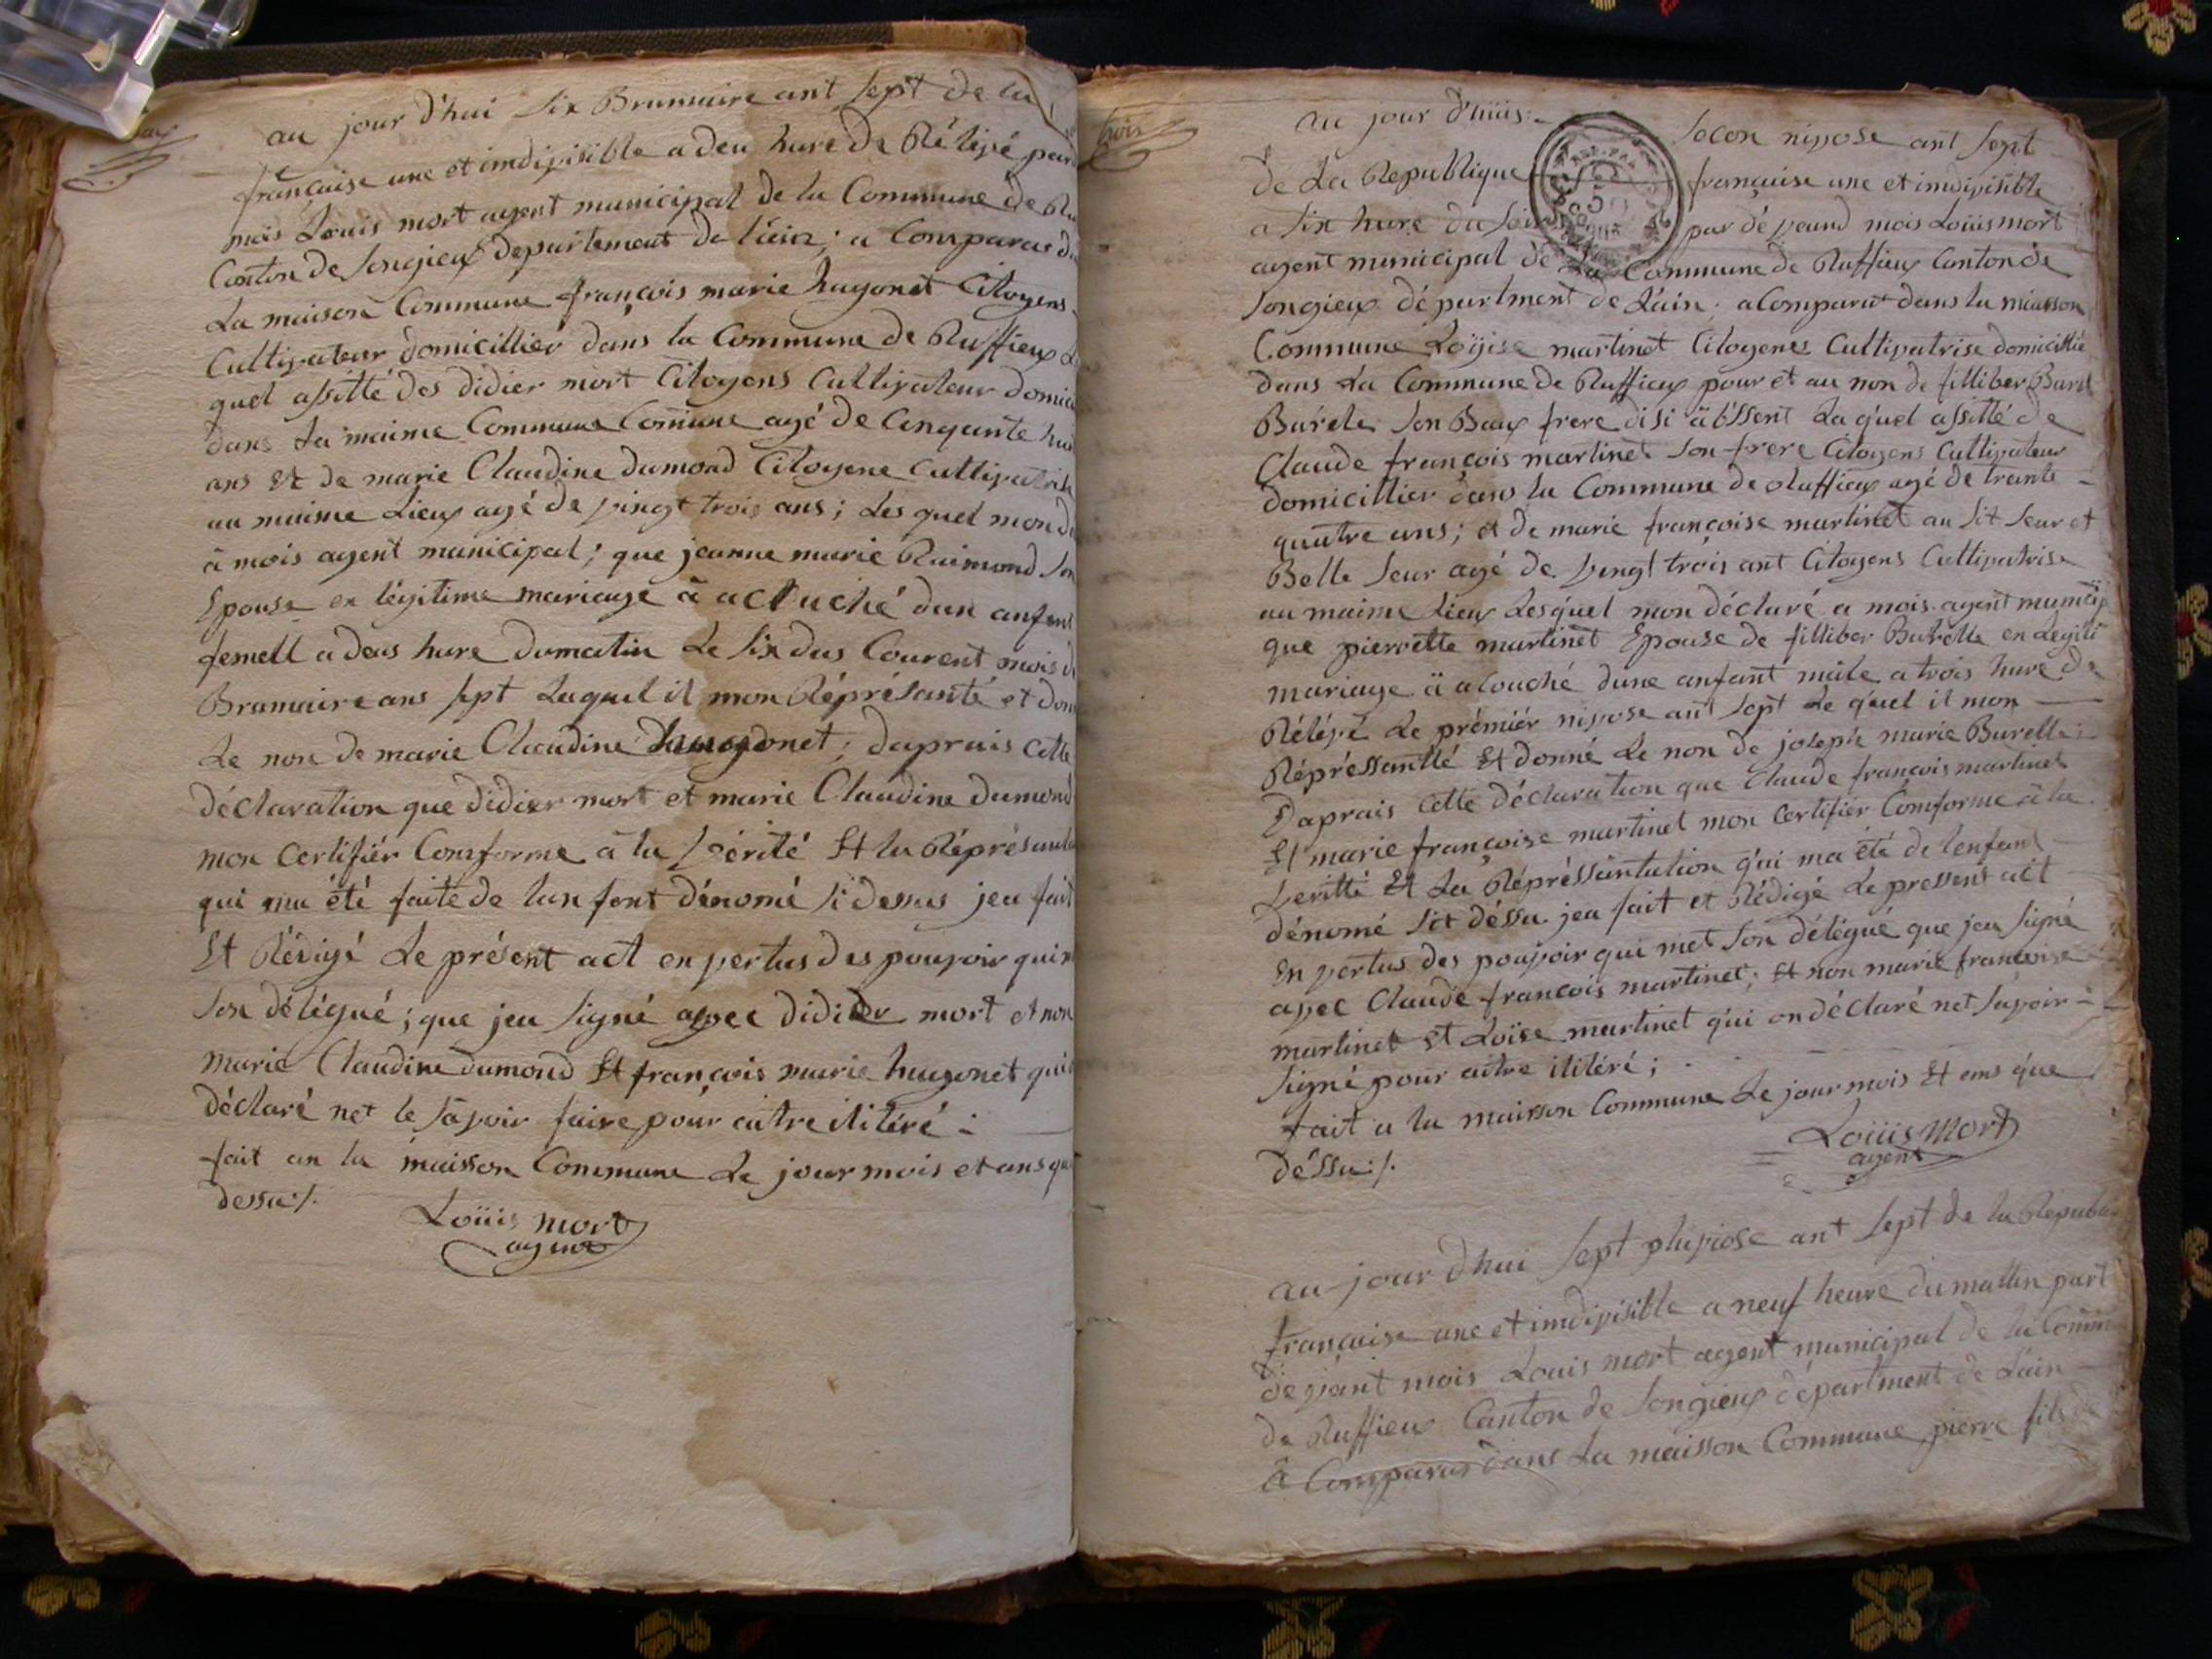 au jour d'hui six Brumaire ant sept de la
française une et imdivisible a deu hure de Rélivé par
mois Louis mort agent municipal de la Commune de Ru
Canton de songieux departement de l'ain; a Comparue d
La maison Commune françois marie hugonet Citoyens
Cultivateur domicillier dans la Commune de Ruffieux L
quel assitté des didier mort Citoyens Cultivateur domici
dans la maime Commune Comune agé de Cinquante hui
ans Et de marie Claudine dumond Citoyene Cultivatrise
au maime Lieux agé de vingt trois ans; Les quel mon de
à mois agent municipal; que jeanne marie Raimond son
Epouse en légitime mariage à actuché dun anfent
femell a deus hure dumatin Le six dus Courent mois d
Brumaire ans sept Laquel il mon Réprésanté et don
Le non de marie Claudine hugonet; daprais cette
déclaration que didier mort et marie Claudine dumond
mon Certifiér Comforme à la Vérité Et la Réprésenta
qui ma été faite de lanfent dénomé si dessus jeu fait
Et Rédigé Le présent act en vertus des pouvoir qui m
son délégué; que jeu signé avec didier mort et non
marie Claudine dumond Et françois marie hugonet qui
déclaré net le savoir faire pour aitre ilitéré :
fait an la maisson Commune Le jour mois et ans que
dessu:/.
Loüis mort
agent
trois
au jour d'huis: Secon nivose ant sept
de La Republique française une et imdivisible
a six hure du soir par dé vand mois Loüis mort
agent municipal de la Commune de Ruffieux Canton de
songieux départment de L'ain; a Comparut dans la maisson
Commune Loÿise martinet Citoyenes Cultivatrise domicillié
dans La Commune de Ruffieux pour et au non de filliber Burel
Burele son Baux frere disi äbssent La quel assitté de
Claude françois martinet son frere Citoyens Cultivateur
domicillier dans la Commune de Ruffieux agé de trante
quatre ans; et de marie françoise martinet au sit seur et
Belle seur agé de vingt trois ant Citoyens Cultivatrise
au maime Lieux Lesquel mon déclaré a mois agent municip
que pierrette martinet Epouse de filliber Burelle en Legiti
mariage ä alouché dune anfant mâle a trois hure de
Rélevé Le prémiér nivose ant sept Le quel il mon
Répréssantté Et donné Le non de joseph marie Burelle;
Daprais cette déclaration que Claude françois martinet
Et marie françoise martinet mon certifiér Comforme à la
veritté Et La Répréssantation qui ma été de lenfant
dénomé sit déssu jeu fait et Rédigé Le pressent act
En vertus des pouvoir qui met son délégué que jeu signé
avec Claude françois martinet; Et non marie françoise
martinet Et Loÿse martinet qui on déclaré net savoir
signé pour aitre ilitéré;
fait a la maisson Commune Le jour mois Et ans que
déssu:/.
Loüis Mort
agent
au jour d'hui sept pluviose ant sept de la Republi
française une et imdivisible a neuf heure du mattin part
devant mois Louis mort agent municipal de la Comm
de Ruffieu Canton de songieux départment de L'ain
à Comparus dans La maisson Commune pierre fils de